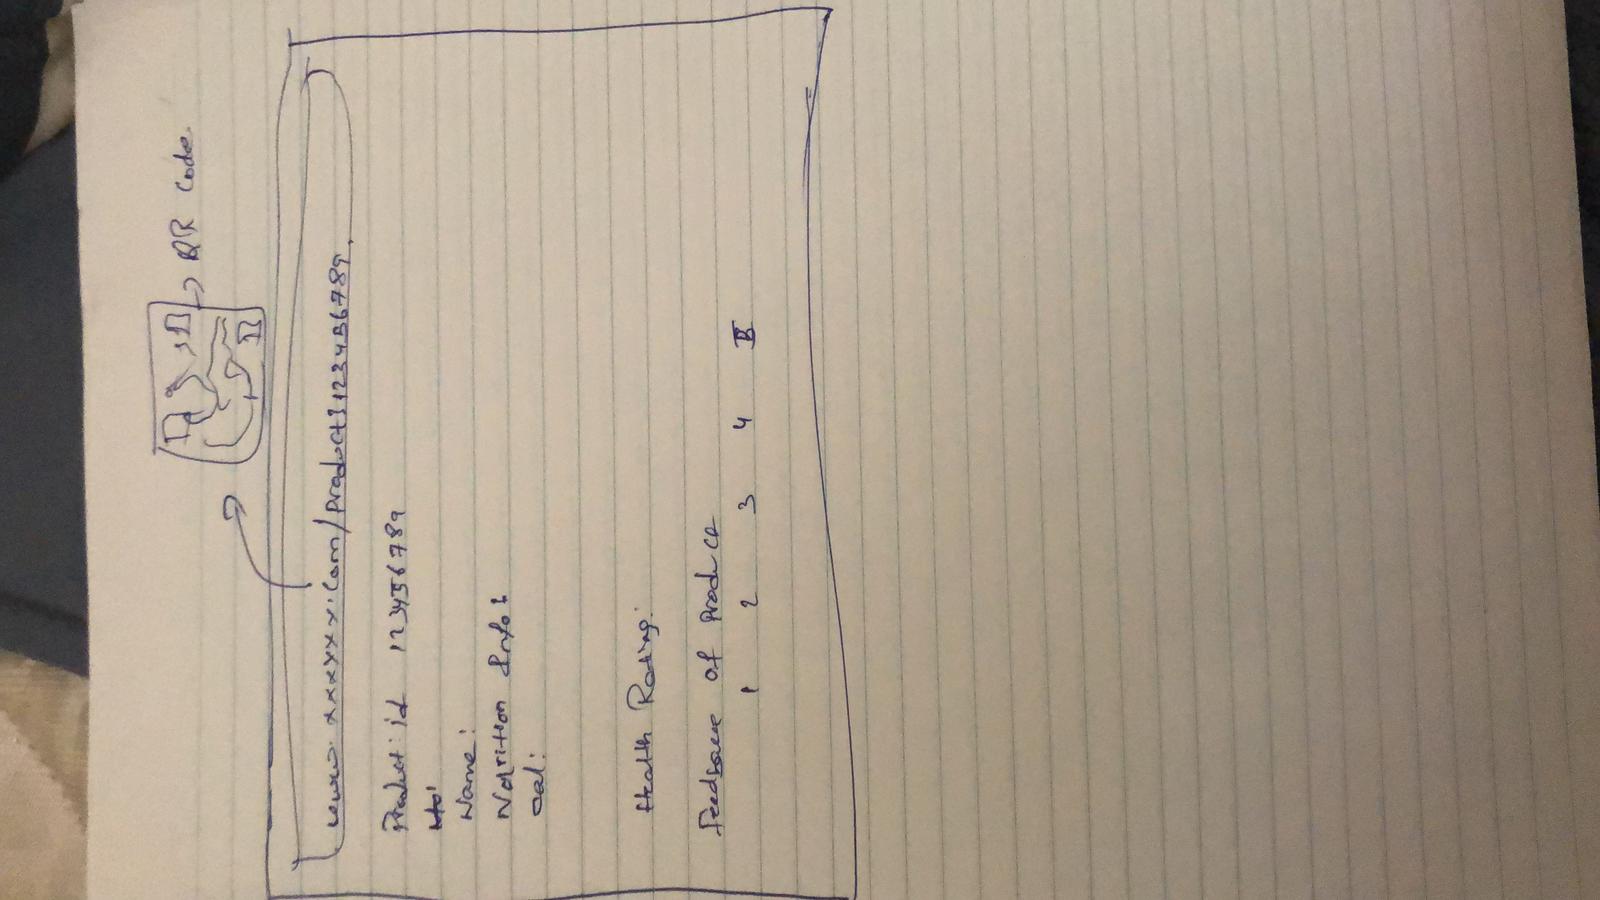 QR Code
www.xxxxxx.com/Product/123456789.
Product: id 123456789
Name:
Nutrition Info:
Cal:
Health Rating:
Feedback of Product
1 2 3 4 5